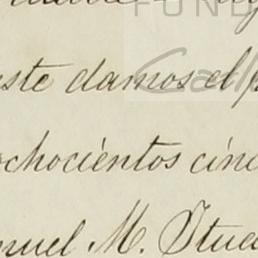 FUND
ste damos el
ochocientos cinc
nuel M. Stud